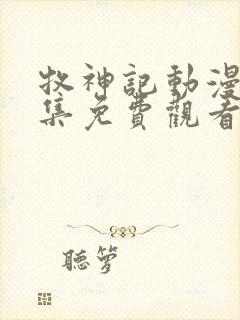 牧神記動漫
集免費觀看
聽夢